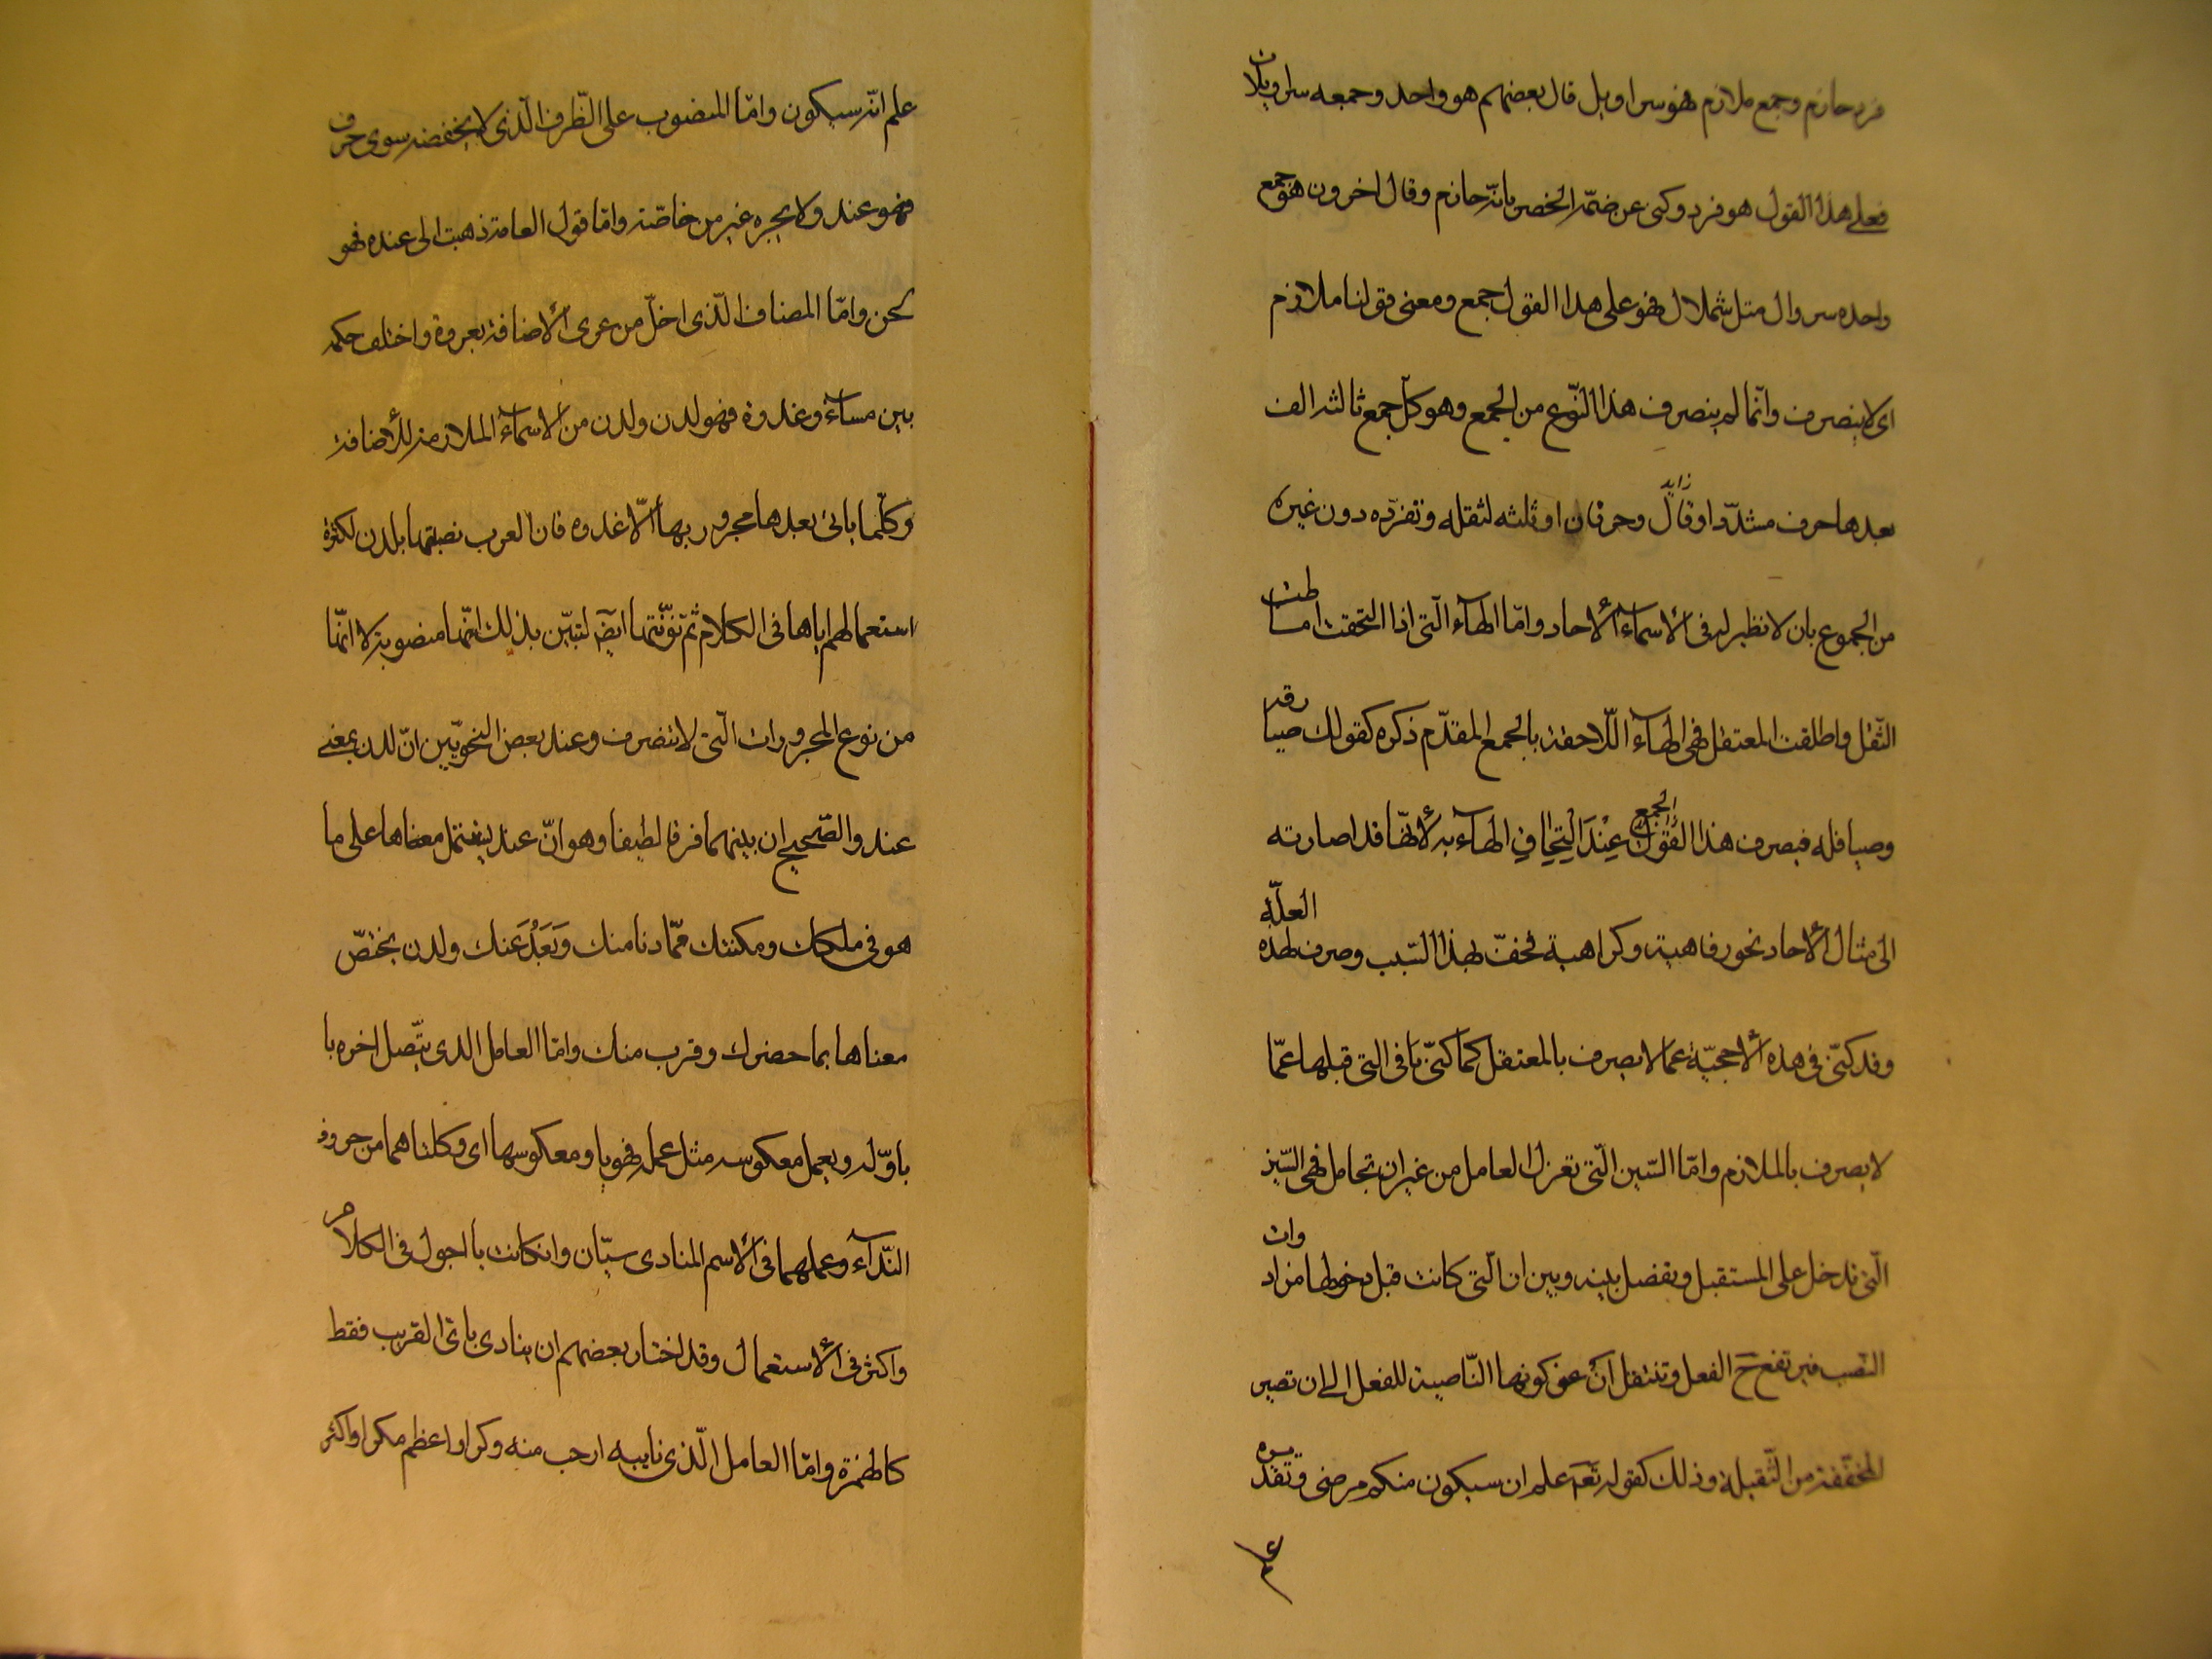 فرد حازم وجمع ملازم فهو سراويل قال بعضهم هو واحد وجمعه سراويلات
فعلى هذا القول هو فرد وكنى عن ضمّه الخصر بانّه حازم وقال اخرون هو جمع
واحده سروال مثل شملال فهو على هذا القول جمع ومعنى قولنا ملازم
اى لا ينصرف وانّما لم ينصرف هذا النّوع من الجمع وهو كلّ جمع ثالثه الف
بعدها حرف مشدّد او قال زايد وحرفان او ثلثه لثقله وتفرّده دون غيره
من الجموع بان لا نظير له فى الأسمآء الأحاد وامّا الهآء الّتى اذا التحقت اماطت
الثّقل واطلقت المعتقل فهى الهآء اللّاحقة بالجمع المقدّم ذكره كقولك صيارفه
وصياقله فيصرف هذا الجمع عِنْدَ الْتِحَاقِ الهآء به لأنّها قد اصارته
الى مثال الأحاد نحو رفاهية وكراهية فخفّ بهذا السّبب وصرف لهذه العلّة
وقد كنّى فى هذه الأحجيّة عما لا يصرف بالمعتقل كما كنّى نا فى التى قبلها عمّا
لا يصرف بالملازم وامّا السّين الّتى تعزل العامل من غير ان تجامل فهى السّين
الّتى تدخل على المستقبل ويفصل بينه وبين ان الّتى كانت قبل دخولها من ادوات
النّصب فيرتفع ح الفعل وتنتقل ان عن كونها النّاصبة للفعل الى ان تصير
المخفّفة من الثّقيلة وذلك كقوله تعٓ علم ان سيكون منكم مرضى وتقديره
علم انّه سيكون وامّا المنصوب على الظّرف الّذى لا يخفضه سوى حرف
فهو عند ولا يجره غير من خاصّة وامّا قول العامة ذهبت الى عنده فهو
لحن وامّا المضاف الّذى اخلّ من عرى الأضافة بعروة واختلف حكمه
بين مسآء وغدوة فهو لدن ولدن من الأسمآء الملازمة للأضافة
وكلّما ياتى بعدها مجرور بها الّا غدوه فان العرب نصبتها بلدن لكثرة
استعمالهم اياها فى الكلام ثم نوّنتها ايضٓ لتبيّن بذلك انّها منصوبة لا انّها
من نوع المجرورات الّتى لا تنصرف وعند بعض النحويّين انّ لدن بمعنى
عند والصّحيح ان بينهما فرقا لطيفا وهو انّ عند يشتمل معناها على ما
هو فى ملكك ومكنتك ممّا دنا منك وَبَعُدَ عنك ولدن يختصّ
معناها بما حضرك وقرب منك وامّا العامل الذى يتّصل اخره با
باوّله ويعمل معكوسه مثل عمله فهو يا ومعكوسها اى وكلتاهما من حروف
النّدآء وعملهما فى الأسم المنادى سيّان وانكانت يا اجول فى الكلام
واكثر فى الأستعمال وقد اختار بعضهم ان ينادى باى القريب فقط
كالهمزة وامّا العامل الّذى نايبه ارحب منه وكرا واعظم مكرا واكثر